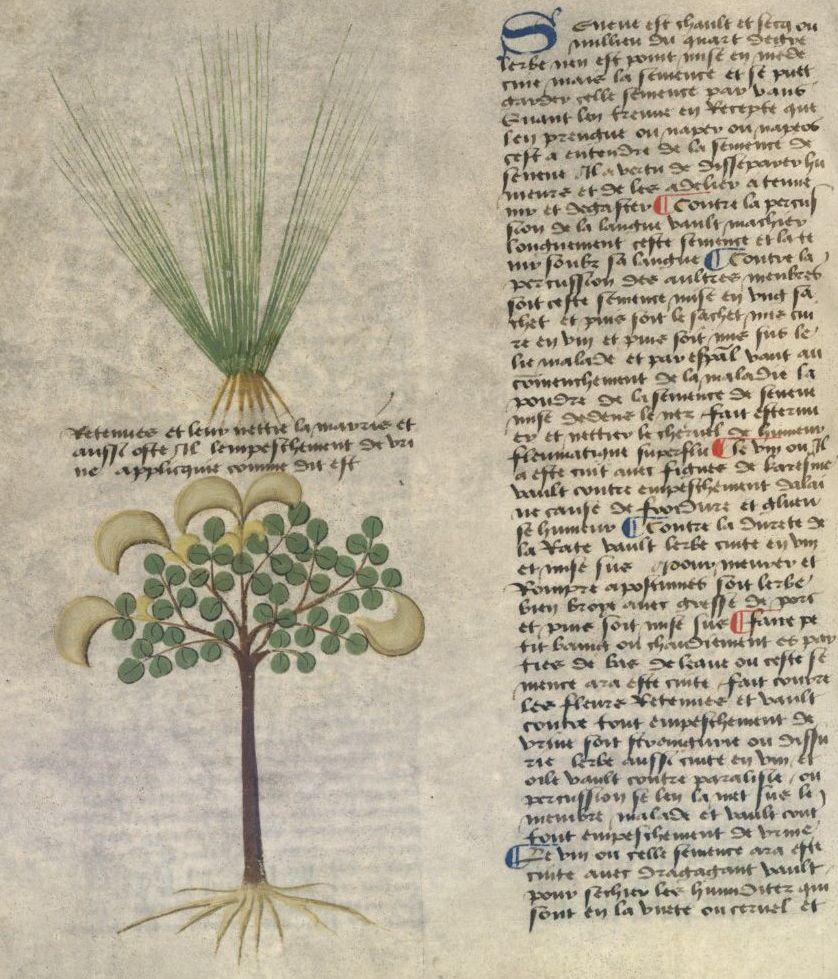 Retenues et leur nettie la marris et
aussi oste Il lempeschement de uri
ne applicquie comme dit est
Seneve est chault et secq ou
millieu du quart degre
lerbe nen est point mise en mede
cine mais la semence et se puet
garder celle semence par v ans
Quant lon treuve en Recepte que
len prengne ou napey ou napeos
cest a entendre de la semence de
seneve Il a vertu de dissepaver hu
meurs et de les adelier atenue
nir et degaster Contre la percus
sion de la langue vault machier
longuement ceste semence et la te
nir soubz sa langue Contre la
percussion des aultres menbres
soit ceste semence mise en ung sa
chet et puis soit le sachet mis cui
re en vin et puis soit mis sus le
lie malade et par espal vaut au
comenchement de la maladie la
pouldre de la semence de seneve
mise dedens le nez fait esternu
er et nettier le chervel de humeur
fleumatique superflu Le vin ou Il
a este cuit avec figues de karesme
vault contre empeschement dalai
ne cause de froidure et glueu
se humeur Contre la durete de
la Rate vault lerbe cuite en vin
et mise sus Pour meurer et
Rompre apostumes soit lerbe
bien broye avec gresse de porc
et puis soit mise sus Faire pe
tit baing ou chaudiement es par
ties de bas de leaue ou ceste se
mence ara este cuite fait courre
les fleurs Retenues et vault
contre tout empeschement de
urine soit stranguirie ou dissu
rie lerbe aussi cuite en vin et
oile vault contre paralisie ou
percussion se len la met sus le
menbre malade et vault cont
tout empeschement de urine
Le vin ou celle semence ara este
cuite avec dragagant vault
pour sechier les humiditez qui
sont en la vuete ou cervel et